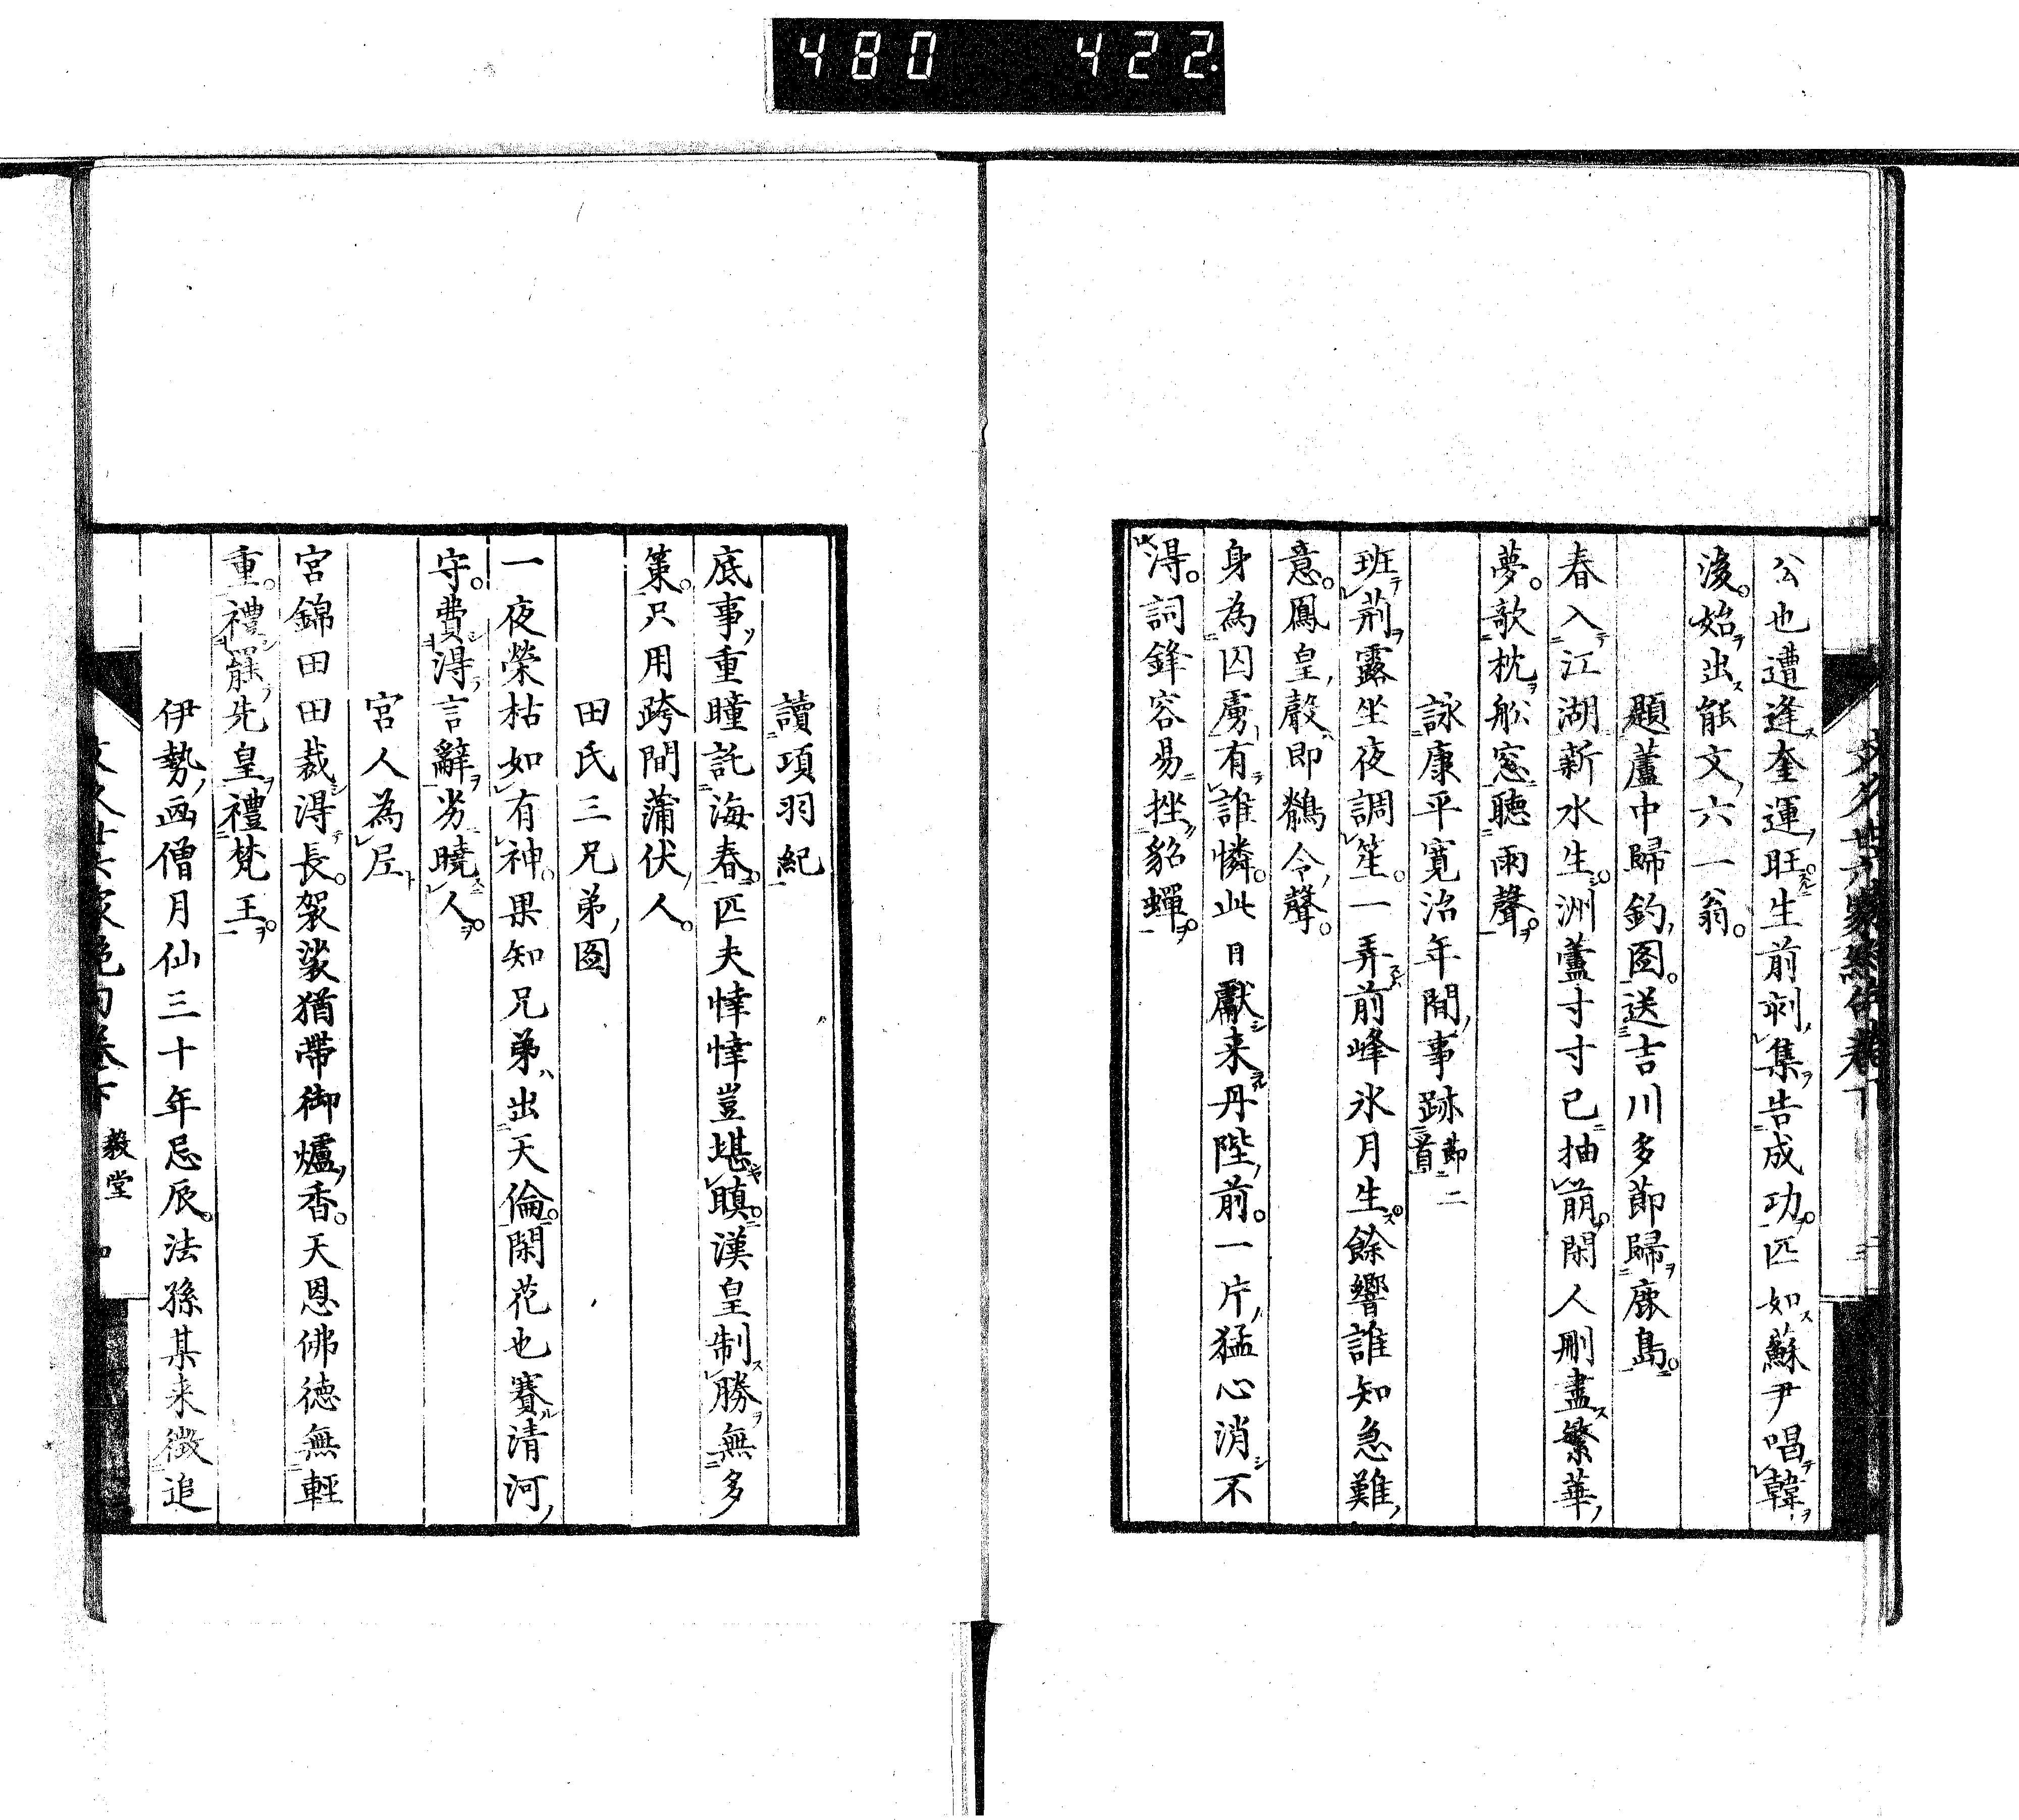 480 422
公也遭逢奎運旺生前刺集告成功匹如蘇尹唱韓
後始出能文六一翁
題蘆中歸釣図送吉川多節歸鹿島
春入江湖新水生洲蘆寸寸已抽萠閑人刪盡繁華
夢歌枕舩窓聽雨聲
詠康平寛治年間事跡節二首
班荊露坐夜調笙一弄前峰氷月生餘響誰知急難
意鳳皇聲即鶺令聲
身為囚虜有誰憐此日獻来丹陛前一片猛心消不
得詞鋒容易挫貂蟬
讀項羽紀
底事重瞳託海春匹夫悻悻豈堪瞋漢皇制勝無多
策只用跨間蒲伏人
田氏三兄弟図
一夜榮枯如有神果知兄弟出天倫閑花也賽清河
守費得言辭劣曉人
宮人為尼
宮錦田田裁得長袈裟猶帶御爐香天恩佛徳無輕
重禮罷先皇禮梵王
伊勢画僧月仙三十年忌辰法孫某来徴追
毅堂